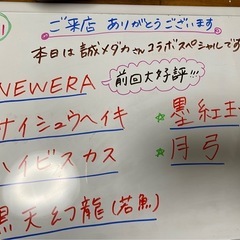 ご来店 ありがとうございます
本日は誠メダカさんコラボスペシャルです
NEWERA 前回大好評!!!
ナイシュウヘイキ ★墨紅王
ハイビスカス ★月弓
黒天幻龍(若魚)